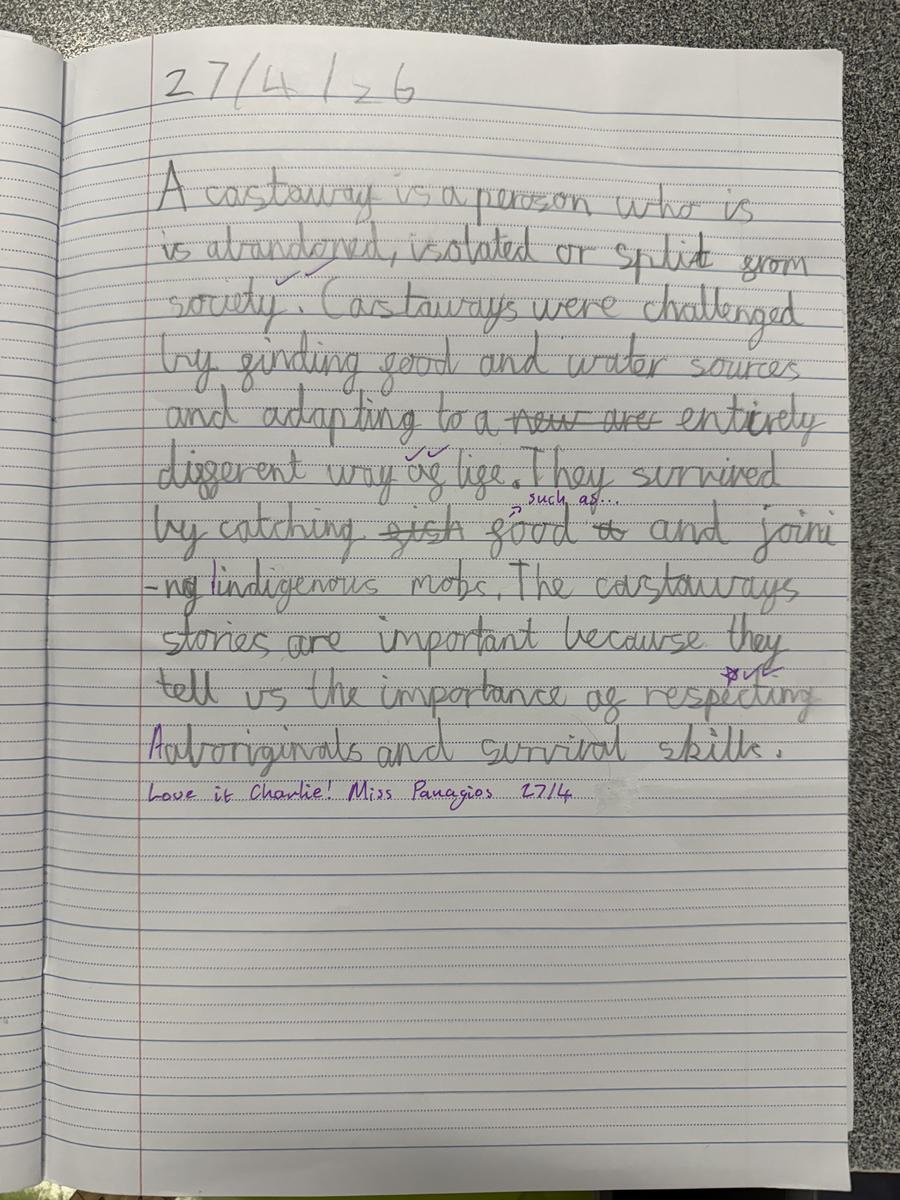 27/4/26
A castaway is a peroson who is
is abandoned, isolated or split from
society. Castaways were challenged
by finding food and water sources
and adapting to a new are entirely
different way of life. They survived
such as...
by catching fish food to and joini
-ng Iindigenous mobs. The castaways
stories are important because they
tell us the importance of respecting
Aaboriginals and survival skills.
Love it Charlie! Miss Panagios 27/4